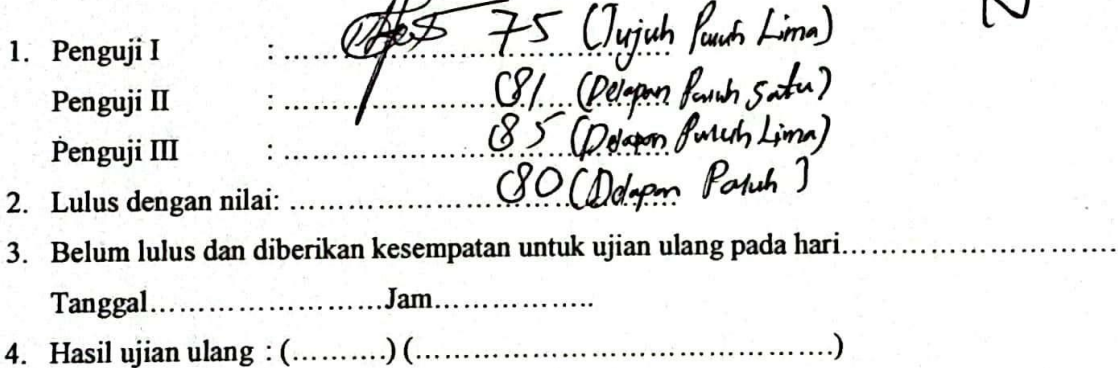 1. Penguji I : ...... 75 (Tujuh Puluh Lima)
Penguji II : ...... 81 (Delapan Puluh Satu)
Penguji III : ...... 85 (Delapan Puluh Lima)
2. Lulus dengan nilai: ...... 80 (Delapan Puluh)
3. Belum lulus dan diberikan kesempatan untuk ujian ulang pada hari..............................
Tanggal..........................Jam..................
4. Hasil ujian ulang : (..........) (.............................................)